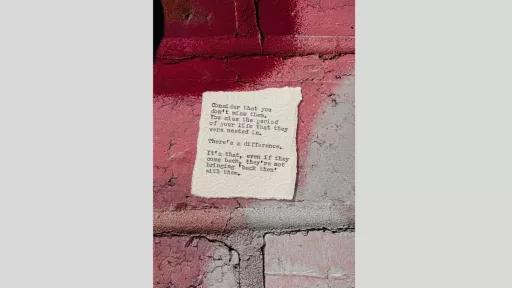 Consider that you
don't miss them.
You miss the period
of your life that they
were nested in.
There's a difference.
It's that, even if they
come back, they're not
bringing 'back then'
with them.